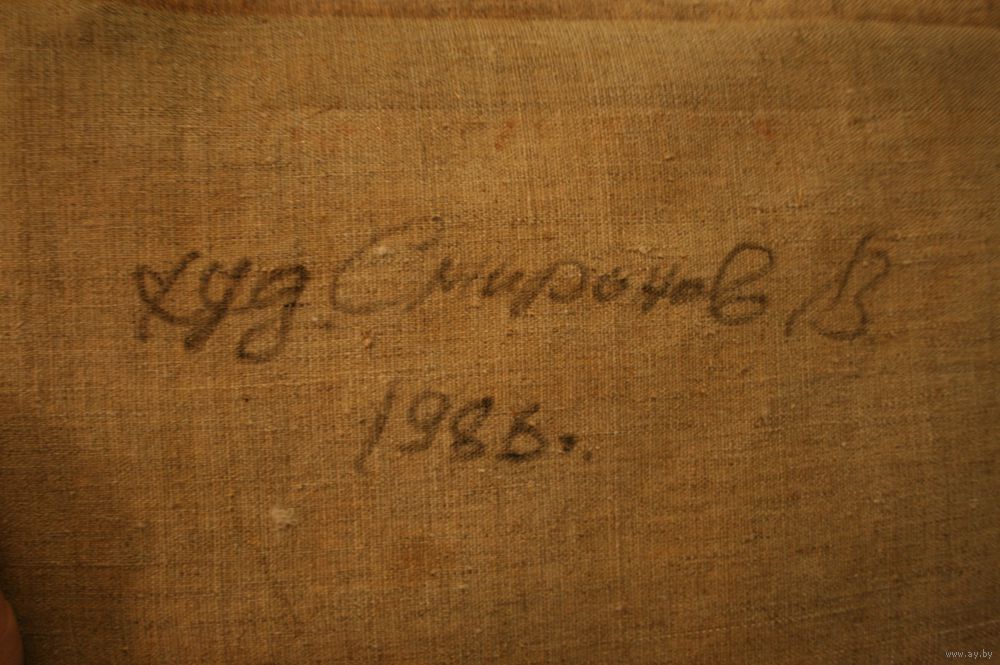 худ Смиронов В
1986.
www.ay.by